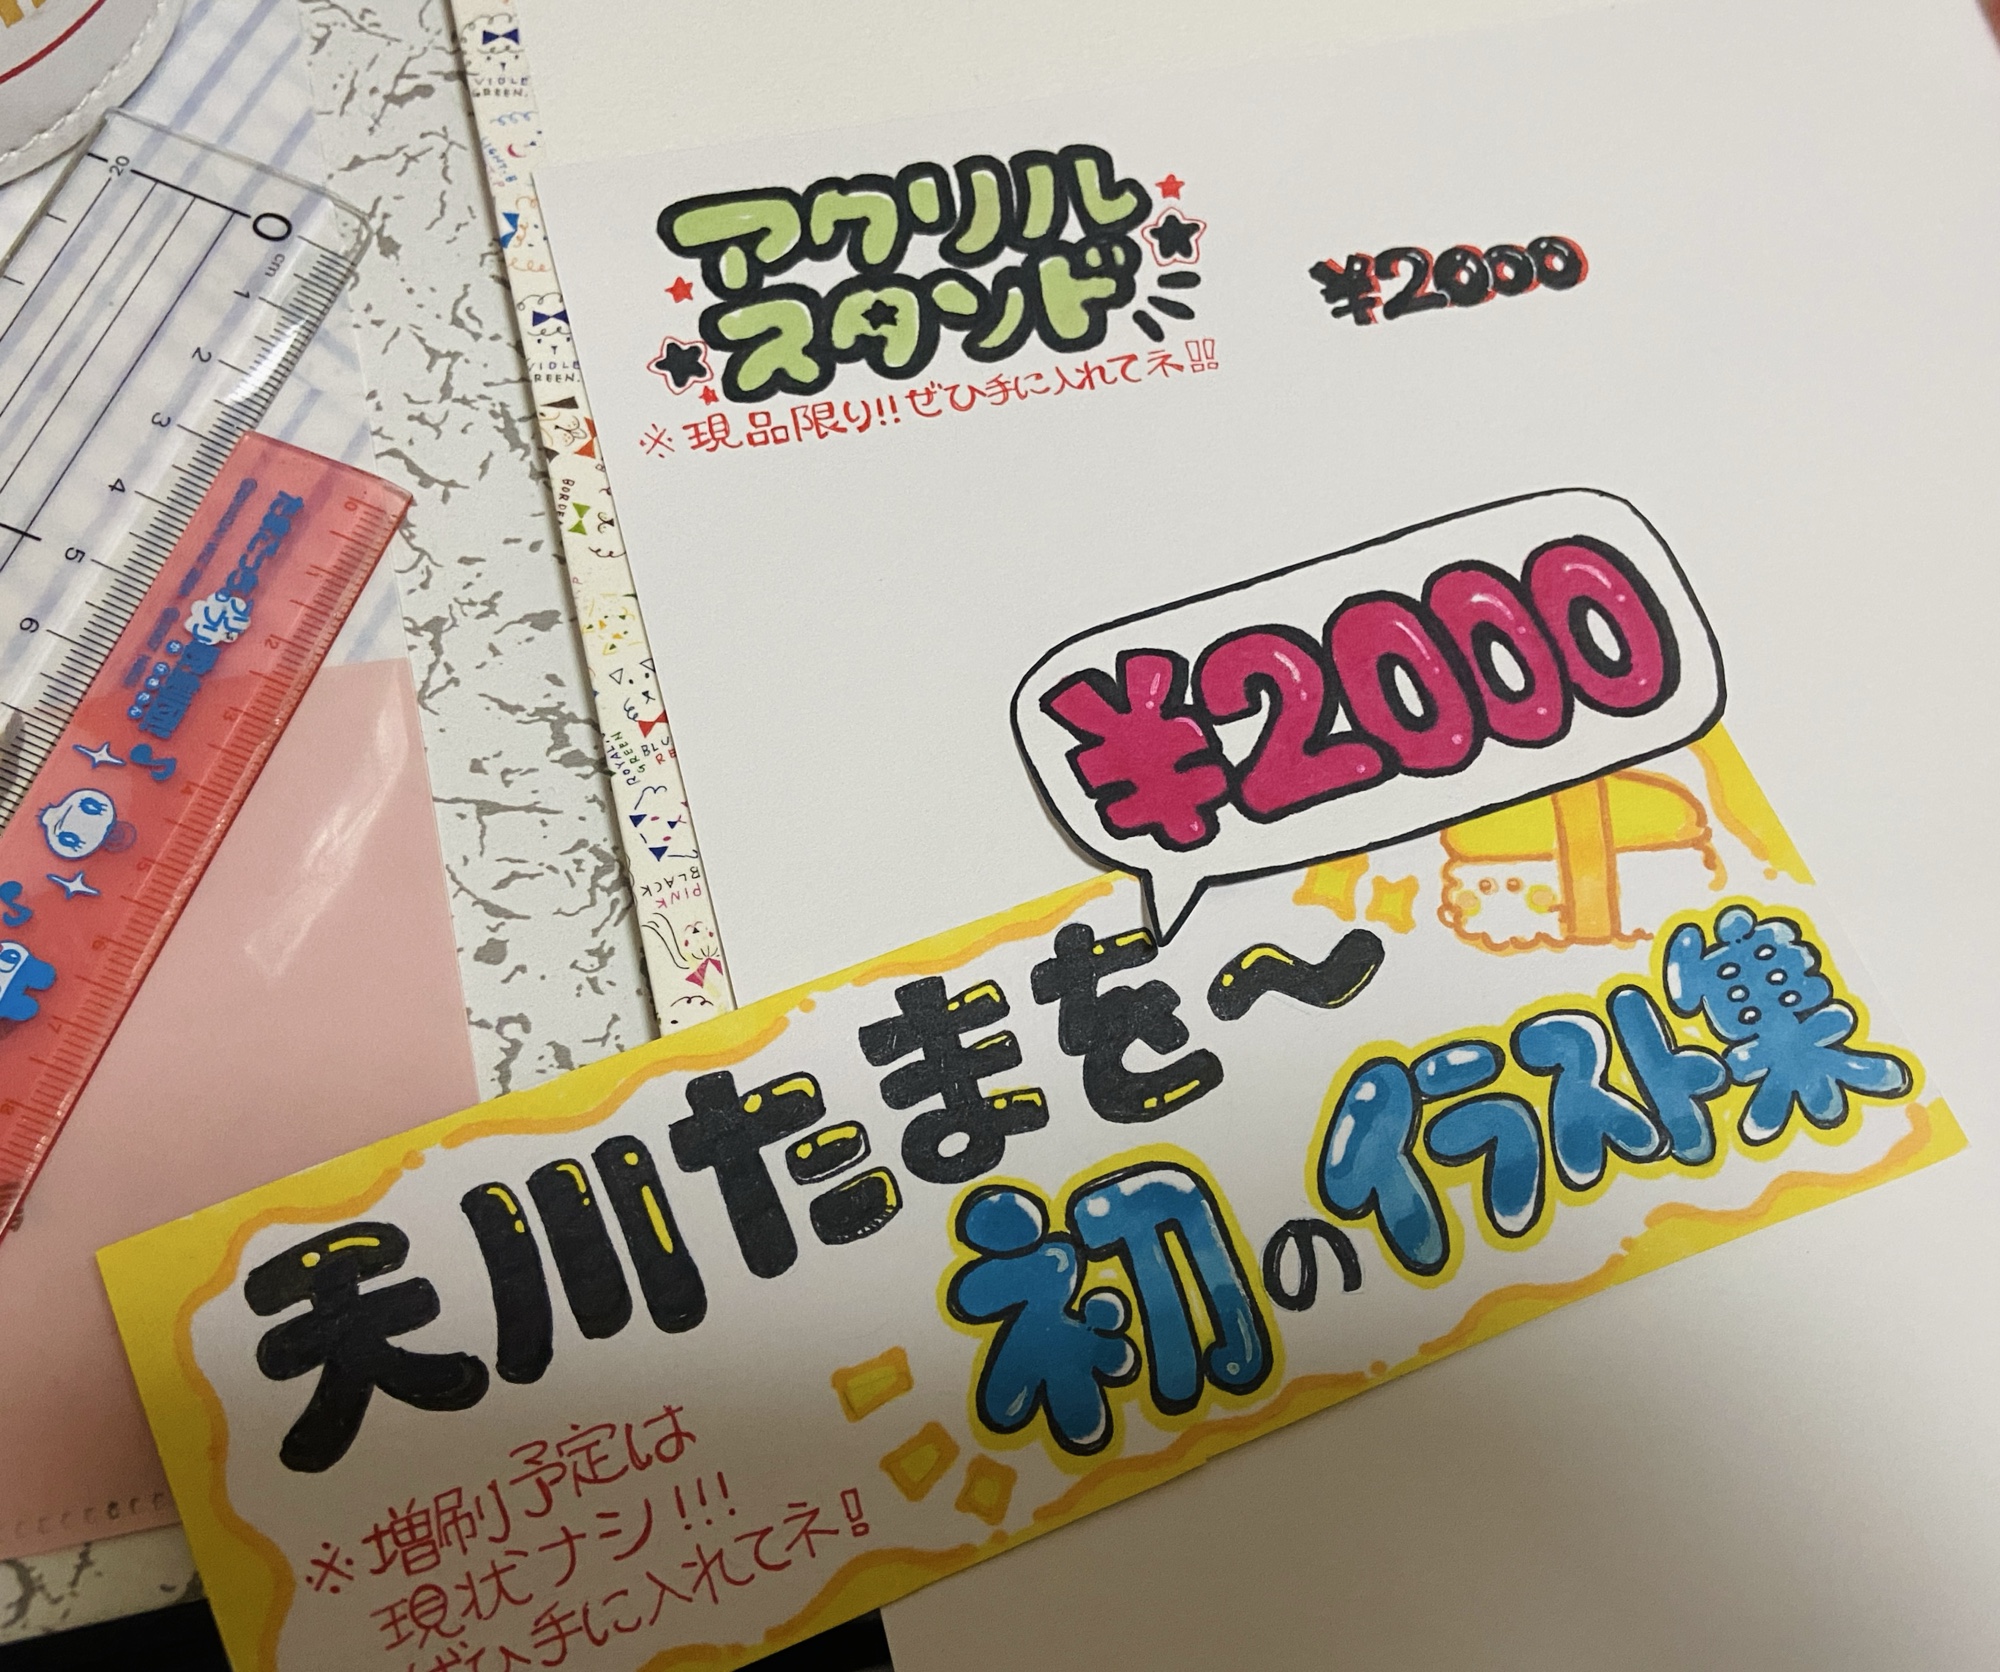 アクリル
スタンド
¥2000
※現品限り!!ぜひ手に入れてネ!!
¥2000
天川たまを〜
初のイラスト集
※増刷予定は
現状ナシ!!!
ぜひ手に入れてネ!!
20
0
cm
1
2
3
4
5
6
VIOLE
GREEN.
VIOLE
REEN.
BORDE
ROYAL
GREEN
BLU
RE
BLACK
PINK